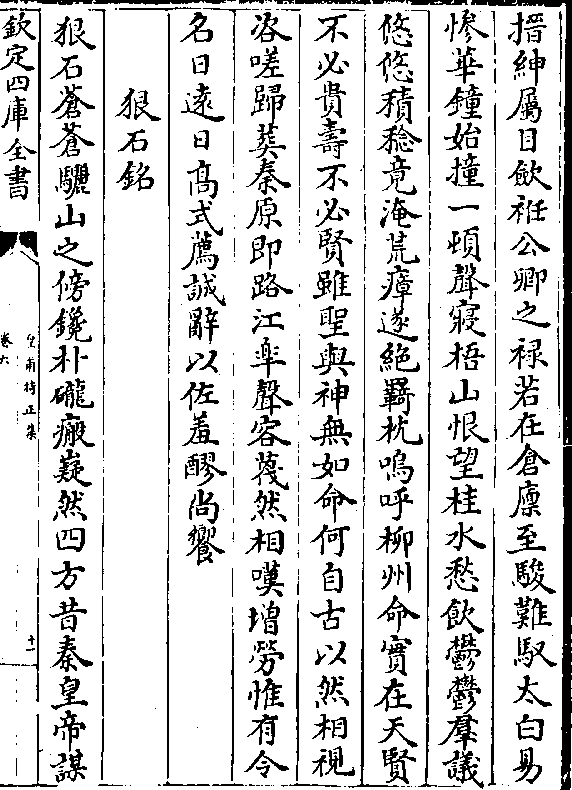 搢紳屬目歛袵公卿之祿若在倉廩至駿難馭太白易
慘華鐘始撞一頓聲寢梧山恨望桂水愁飲鬱鬱羣議
悠悠積稔竟淹荒瘴遂絶羇枕嗚呼柳州命實在天賢
不必貴壽不必賢雖聖與神無如命何自古以然相視
咨嗟歸葬秦原即路江皋聲容蔑然相嘆增勞惟有令
名日遠日高式薦誠辭以佐羞醪尚饗
狠石銘
狠石蒼蒼驪山之傍鑱朴礲瘢嶷然四方昔秦皇帝謀
欽定四庫全書
皇甫持正集
卷六
十一